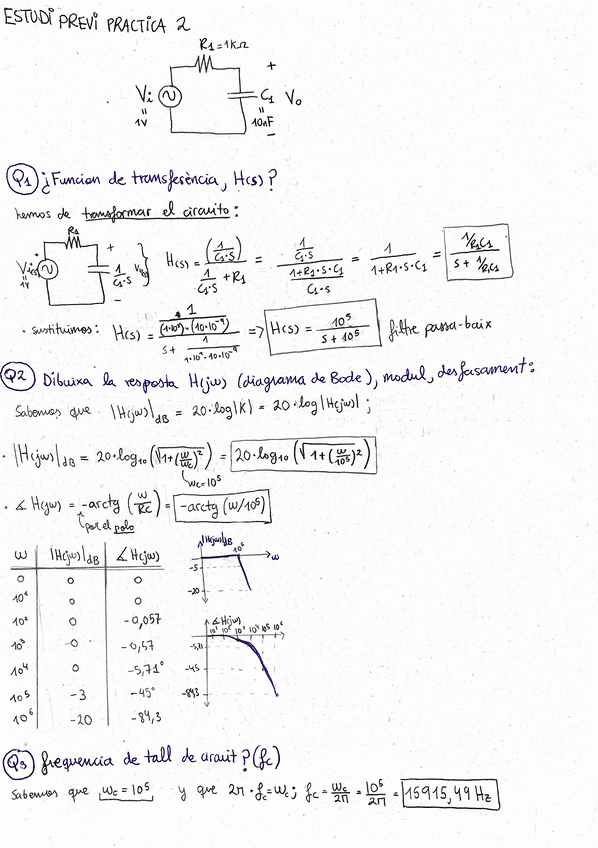 ESTUDI PREVI PRACTICA 2
R1=1KΩ
+
Vi
C1
Vo
=
1V
=
10nF
-
Q1 ¿Funcion de transferència, H(s)?
hemos de transformar el circuito:
R1
+
Vi(s)
=
1V
1/(C1·S)
-
H(s) = (1/(C1·S)) / (1/(C1·S) + R1) = (1/(C1·S)) / ((1+R1·S·C1)/(C1·S)) = 1/(1+R1·S·C1) = (1/R1C1) / (S + 1/R1C1)
· sustituimos: H(s) = (1/((1·10³)·(10·10⁻⁹))) / (S + 1/(1·10³·10·10⁻⁹)) => H(s) = 10⁵/(S + 10⁵) filtre passa-baix
Q2 Dibuixa la resposta H(jw) (diagrama de Bode), modul, desfasament:
Sabemos que |H(jw)|dB = 20·log|K| = 20·log|H(jw)|;
· |H(jw)|dB = 20·log10 (√(1+(w/wc)²)) = 20·log10 (√(1+(w/10⁵)²))
wc=10⁵
· ∡ H(jw) = -arctg (w/RC) = -arctg (w/10⁵)
por el polo
w |H(jw)|dB ∡ H(jw)
0 0 0
10¹ 0 0
10² 0 -0,057
10³ -0 -0,57
10⁴ 0 -5,71°
10⁵ -3 -45°
10⁶ -20 -84,3
|H(jw)|dB
w
-5
-20
∡ H(jw)
10¹ 10² 10³ 10⁴ 10⁵ 10⁶
-5,71
-45
-84,3
Q3 frequencia de tall de circuit? (fc)
Sabemos que wc = 10⁵ y que 2π·fc = wc; fc = wc/2π = 10⁵/2π = 15915,49 Hz